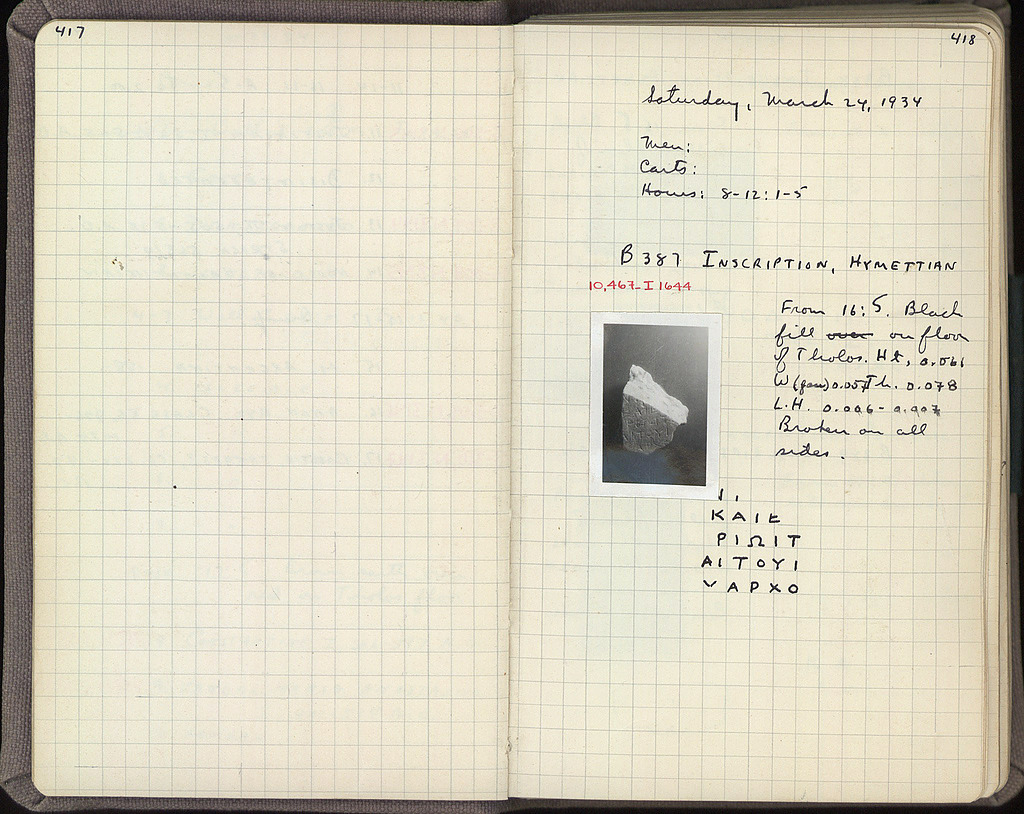 417
418
Saturday, March 24, 1934
Men:
Carts:
Hours: 8-12:1-5
B 387 INSCRIPTION, HYMETTIAN
10,467-I 1644
From 16:S. Black
fill over on floor
of Tholos. Ht, 0.061
W (pres) 0.057 Th. 0.078
L.H. 0.006-0.007
Broken on all
sides.
ΚΑΙΕ
ΡΙΩΙΤ
ΑΙΤΟΥΙ
ΑΡΧΟ